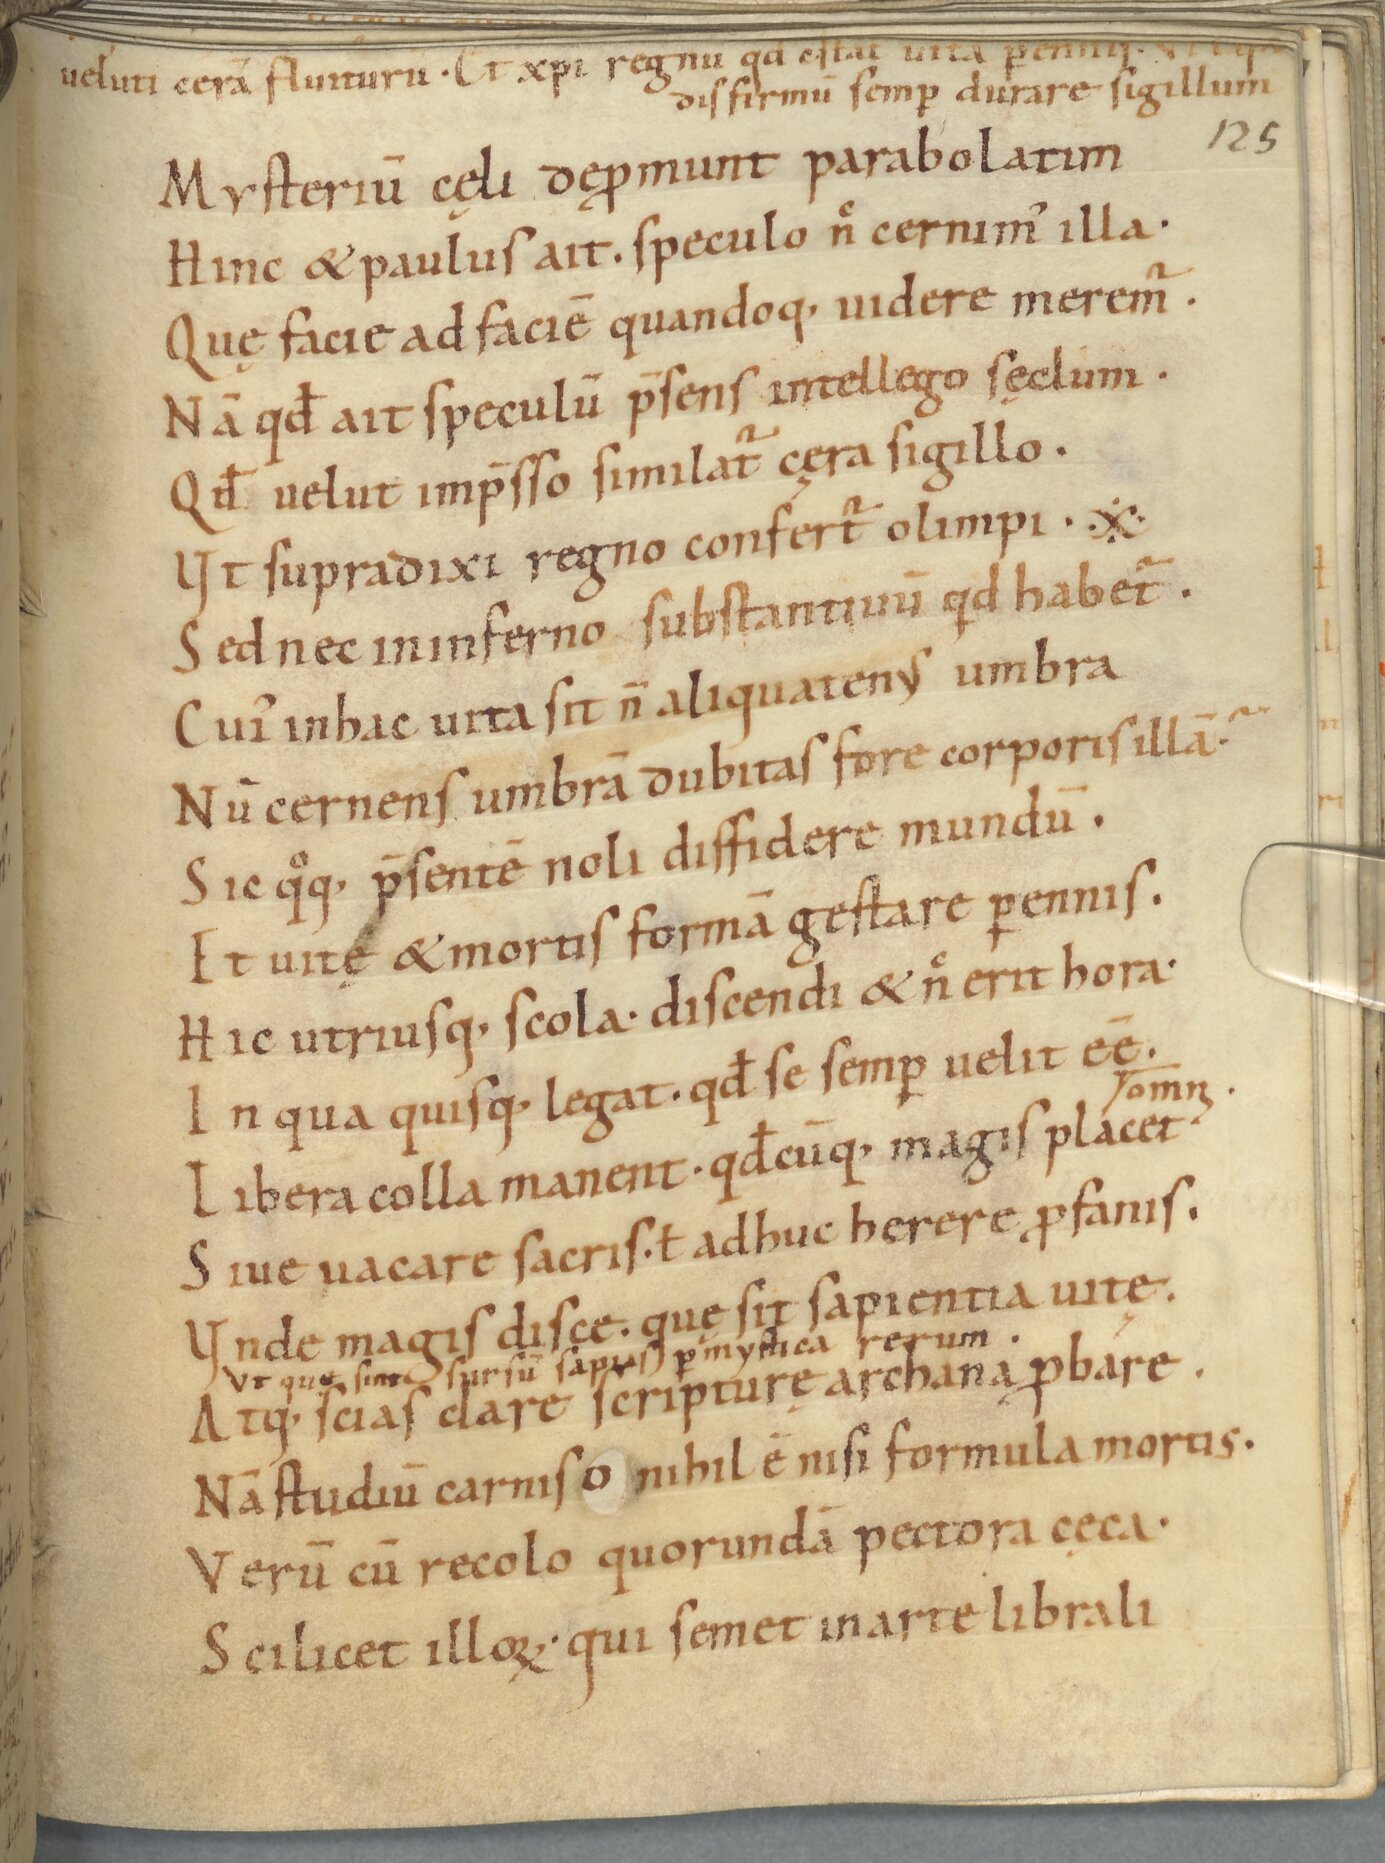 ueluti cerā fluituru · Et xp̄i regnu qd estat uita p̲ennis.
dis firmū semp̲ durare sigillum
125
Mysteriū cęli dęꝓmunt parabolatim
Hinc & paulus ait. speculo nͦ cernim᷒ illa.
Quę facie ad faciē quandoq, uidere meremr̃.
Nā qđ ait speculū p̄sens intellego sęclum.
Qđ uelut imp̄sso similatr̃ cęra sigillo.
Yt supradixi regno confertr̃ olimpi. ※
Sed nec in inferno substantiuū qd habetr̃.
Cui᷒ in hac uita sit n̄ aliquatenus umbra
Nū cernens umbrā dubitas fore corporis illā.
Sic qͦq, p̄sentē noli diffidere mundū.
Et uitę & mortis formā gestare ꝑennis.
Hic utriusq, scola. discendi & nͦ erit hora.
In qua quisq, legat. qđ se semꝑ uelit eē.
Libera colla manent. qđcūq, magis placet
/omīꝫ.
Siue uacare sacris. ł adhuc herere ꝓfanis.
Ynde magis disce. quę sit sapientia uitę.
Vt quę sint sursū sapias ꝑ mystica rerum.
Atq, scias clare scripturę archana ꝓbare.
Nā studiū carnis o nihil ē nisi formula mortis.
Verū cū recolo quorundā pectora cęca.
Scilicet illoꝝ. qui semet in arte librali